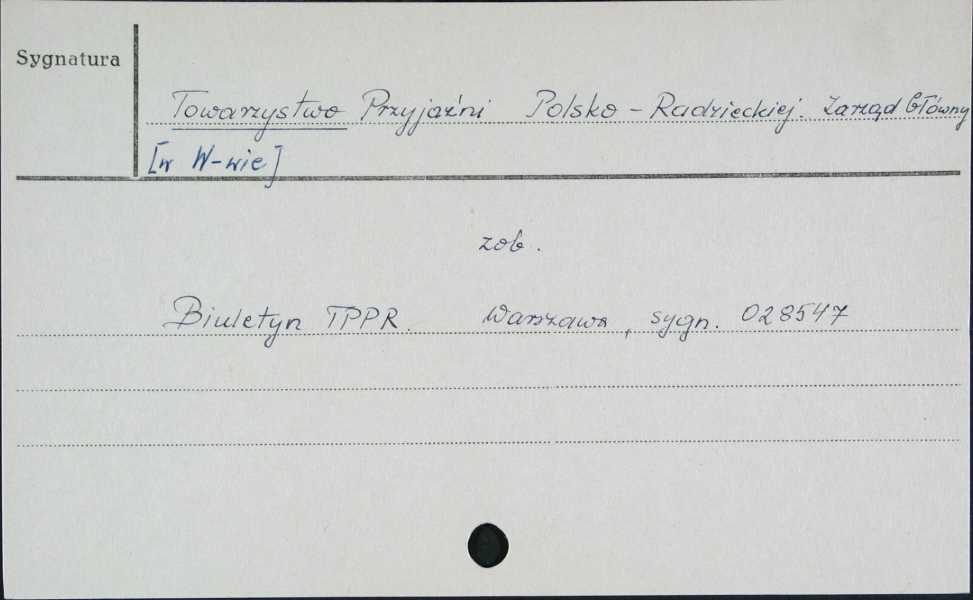 Sygnatura
Towarzystwo Przyjaźni Polsko - Radzieckiej. Zarząd Główny
[w W-wie]
zob.
Biuletyn TPPR. Warszawa, sygn. 028547